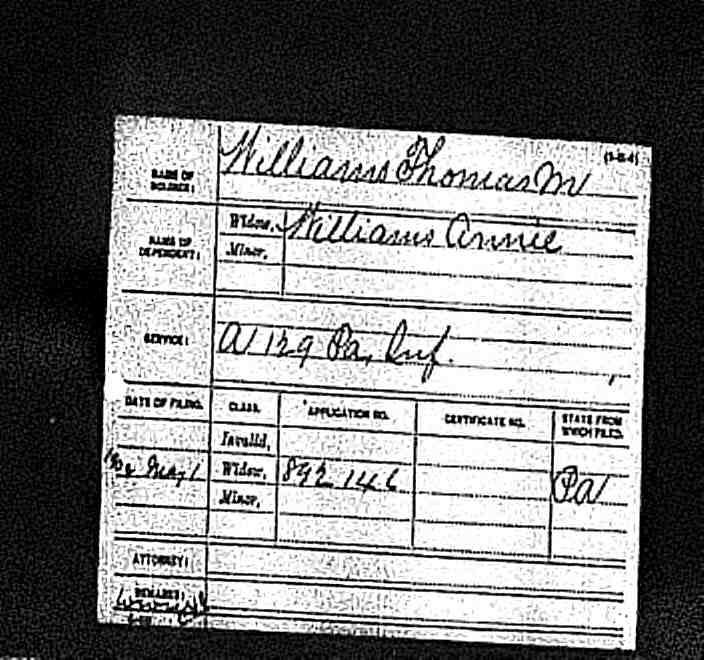 (3-H-4)
NAME OF SOLDIER: Williams Thomas M
NAME OF DEPENDENT: Widow, Williams Annie
Minor,
SERVICE: A 129 Pa, Inf.
DATE OF FILING. CLASS. APPLICATION NO. CERTIFICATE NO. STATE FROM WHICH FILED.
Invalid,
May 1 Widow, 892 146 Pa
Minor,
ATTORNEY:
REMARKS: